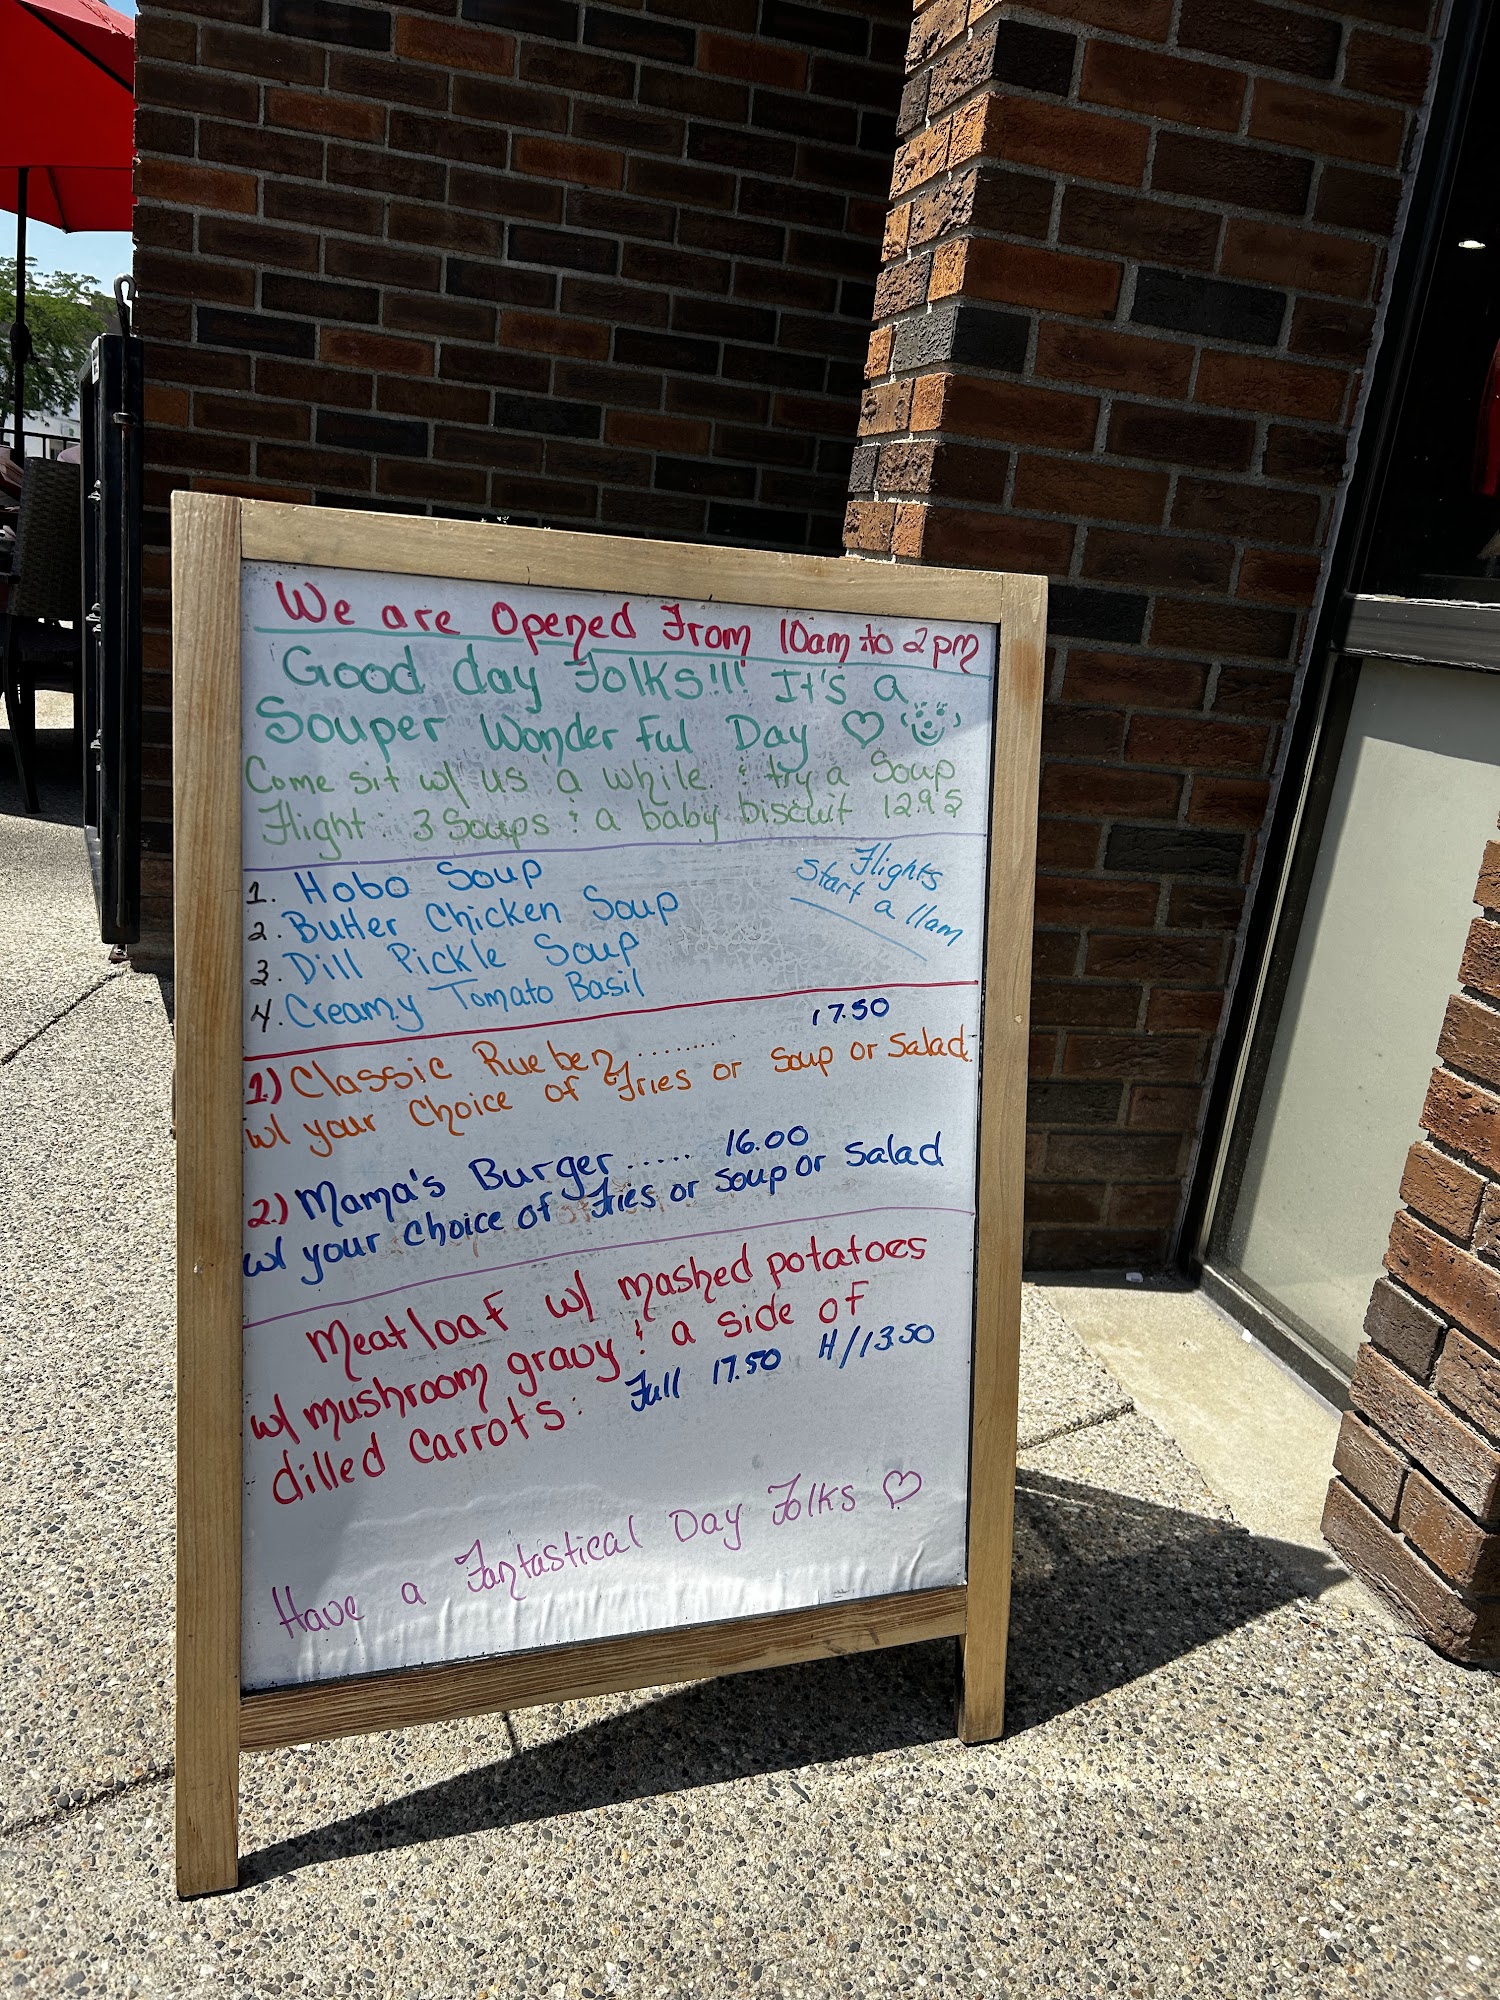 We are Opened From 10am to 2pm
Good day Folks!!! It's a
Souper Wonderful Day
Come sit w/ us a while & try a Soup
Flight: 3 Soups & a baby biscuit 12.95
Flights
Start a 11am
1. Hobo Soup
2. Butter Chicken Soup
3. Dill Pickle Soup
4. Creamy Tomato Basil
1.) Classic Rueben......... 17.50
w/ your choice of Fries or Soup or Salad
2.) Mama's Burger..... 16.00
w/ your choice of Fries or Soup or Salad
Meatloaf w/ mashed potatoes
w/ mushroom gravy & a side of
dilled carrots: Full 17.50 H/13.50
Have a Fantastical Day Folks